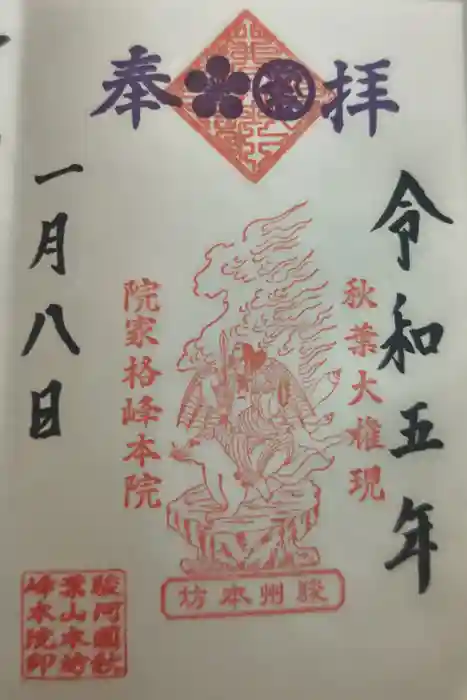 奉拝
令和五年
秋葉大権現
院家格峰本院
駿州本坊
一月八日
駿河國秋
葉山本坊
峰本院印